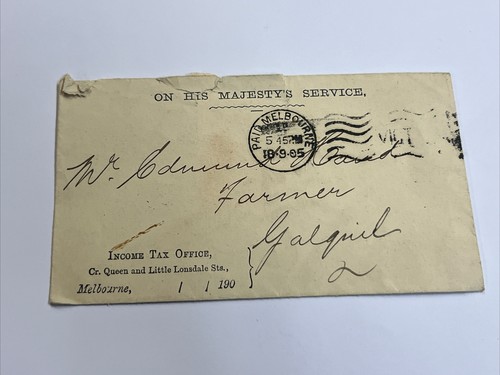 ON HIS MAJESTY'S SERVICE,
PAID MELBOURNE
5 45PM
18·9·05
VICT
Mr. Edmund
Farmer
Galquil
INCOME TAX OFFICE,
Cr. Queen and Little Lonsdale Sts.,
Melbourne, / / 190